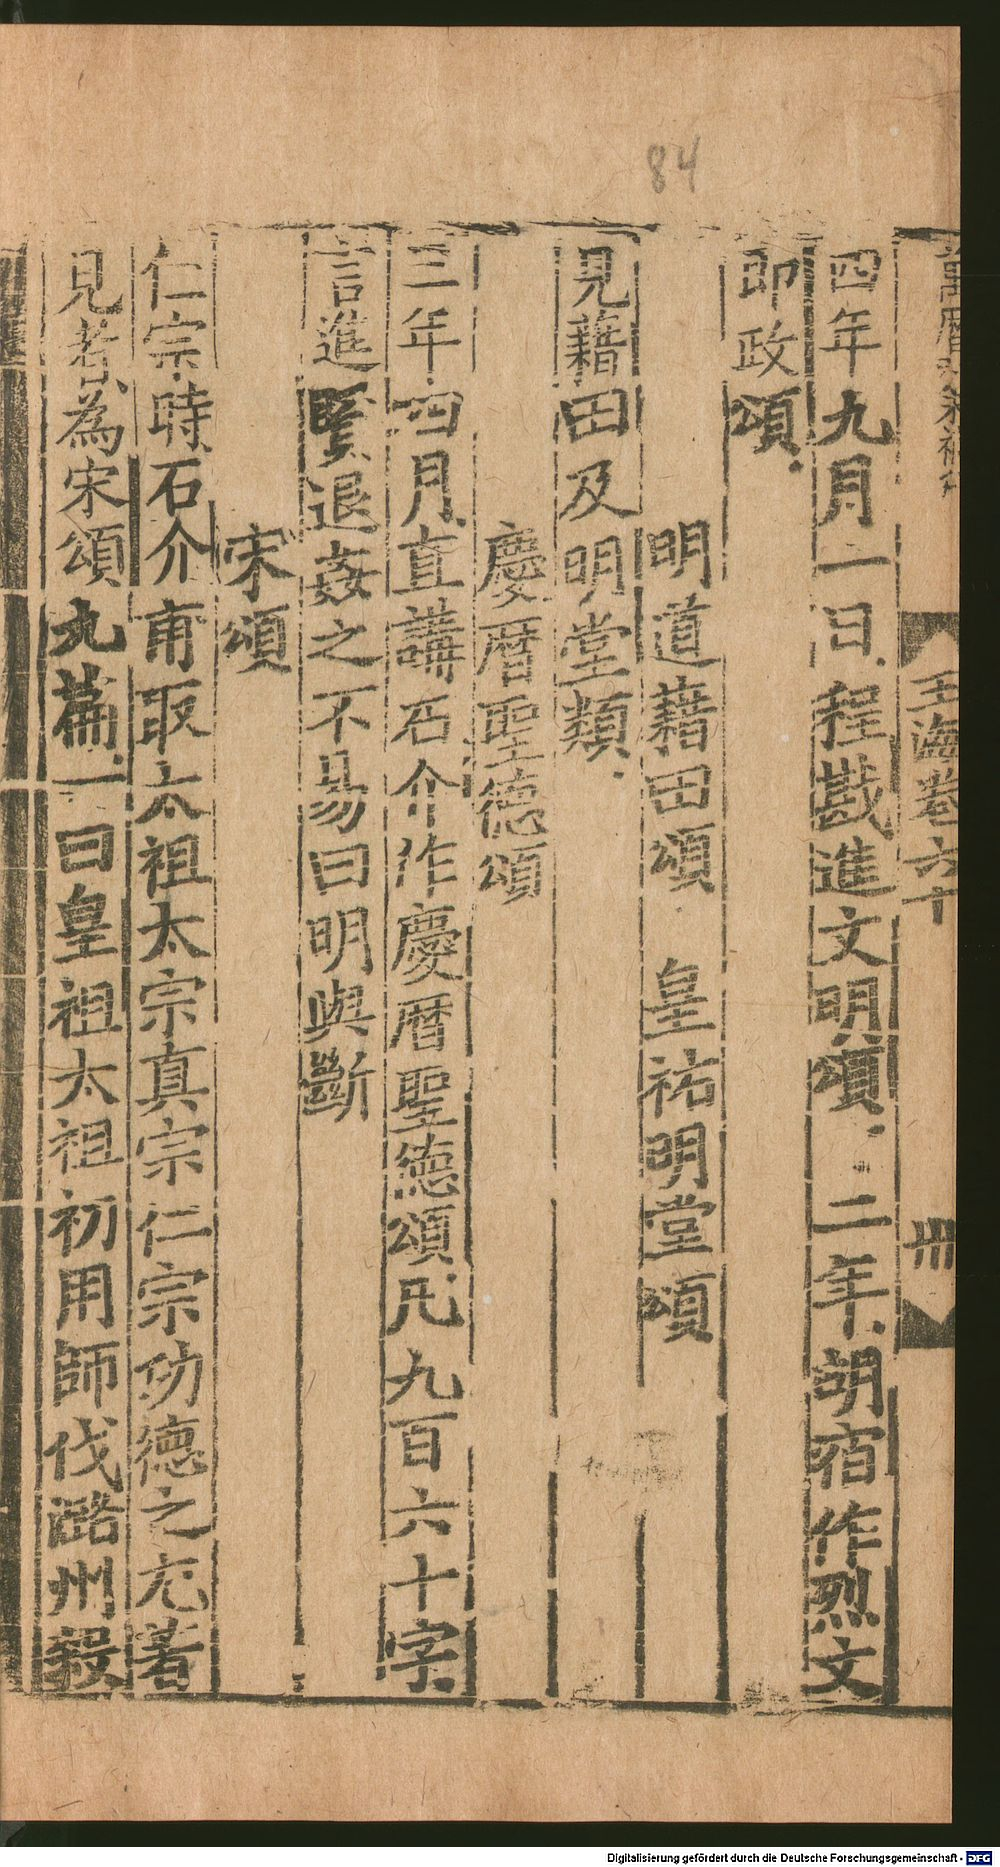 84
玉海卷六十
卅
四年九月一日程戡進文明頌二年胡宿作烈文
即政頌
明道藉田頌 皇祐明堂頌
見藉田及明堂類
慶曆聖德頌
三年四月直講石介作慶曆聖德頌凡九百六十字
言進賢退姦之不易曰明與斷
宋頌
仁宗時石介甫取太祖太宗真宗仁宗功德之尤著
見者為宋頌九篇一曰皇祖太祖初用師伐潞州殺
Digitalisierung gefördert durch die Deutsche Forschungsgemeinschaft - DFG